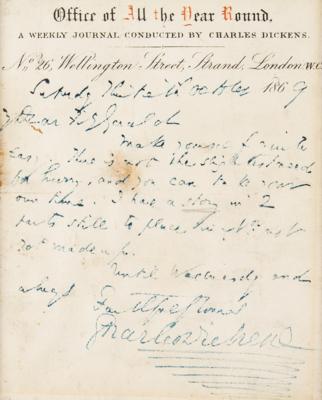 Office of All the Year Round,
A WEEKLY JOURNAL CONDUCTED BY CHARLES DICKENS.
No. 26, Wellington Street, Strand, London W.C.
October 1869
My Dear
Make yourself
easy. There is not the slightest need
for hurry, and you can take your
own time. I have a story in 2
parts still to place, not
made up.
and
always
Faithfully Yours
Charles Dickens